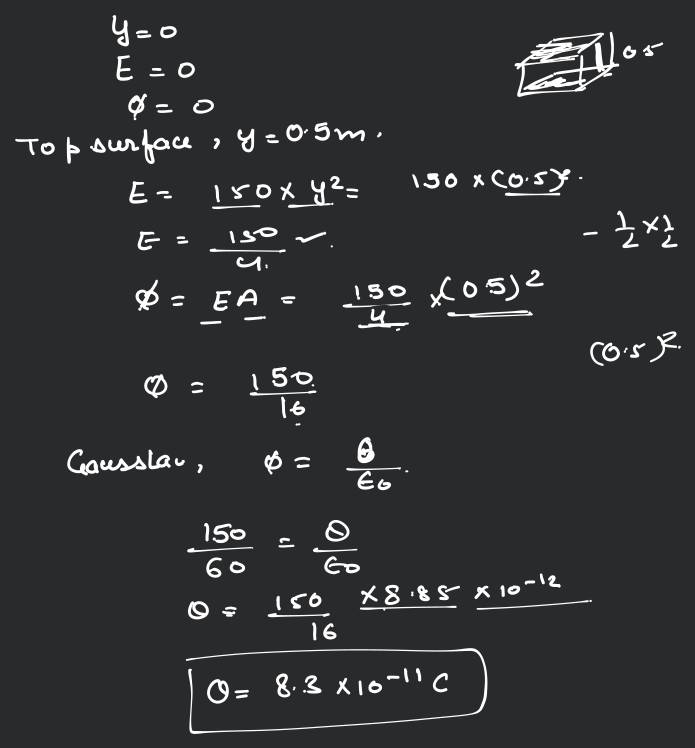 y = 0
E = 0
0.5
φ = 0
Top surface, y = 0.5m.
E = 150 x y² = 150 x (0.5)².
E = 150/4.
- 1/2 x 1/2
φ = EA = 150/4 x (0.5)²
(0.5)².
φ = 150/16
Gausslaw, φ = Q/ε₀.
150/60 = Q/ε₀
Q = 150/16 x 8.85 x 10⁻¹²
Q = 8.3 x 10⁻¹¹ C